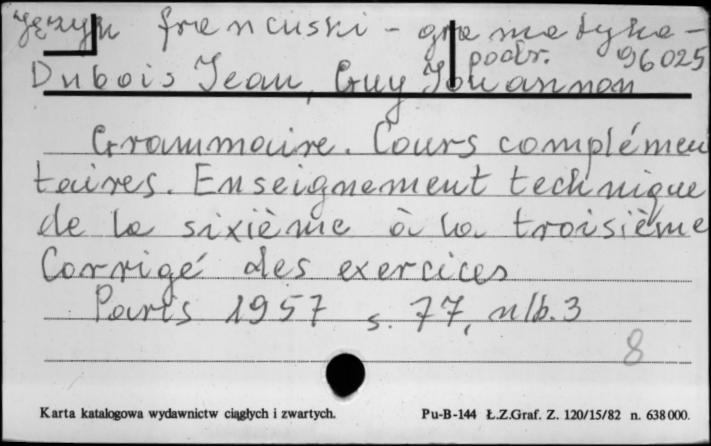 Język francuski - gramatyka -
podr. 96025
Dubois Jean, Guy Jouannon
Grammaire. Cours complémen
taires. Enseignement technique
de la sixième à la troisième
Corrigé des exercices
Paris 1957 s. 77, nlb. 3
8
Karta katalogowa wydawnictw ciągłych i zwartych. Pu-B-144 Ł.Z.Graf. Z. 120/15/82 n. 638000.